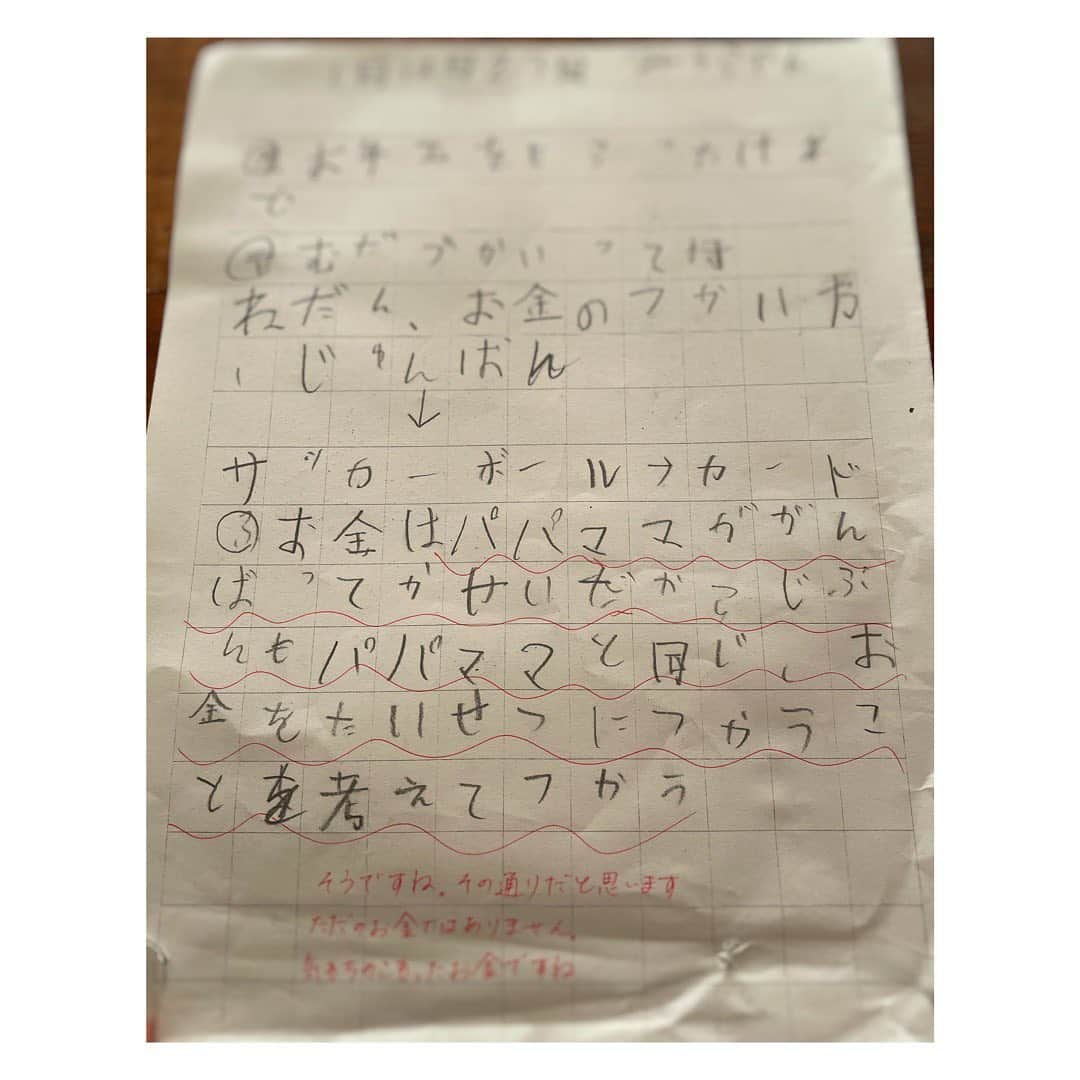 お年玉をもらったけよ
で
むだづかいって何
ねだん、お金のつかい方
、じゅんばん
↓
サッカーボール→カード
③お金はパパママががん
ばってかせいだからじぶ
んもパパママと同じ、お
金をたいせつにつかうこ
とを考えてつかう
そうですね。その通りだと思います
ただのお金ではありません。
気持ちのこもったお金ですね